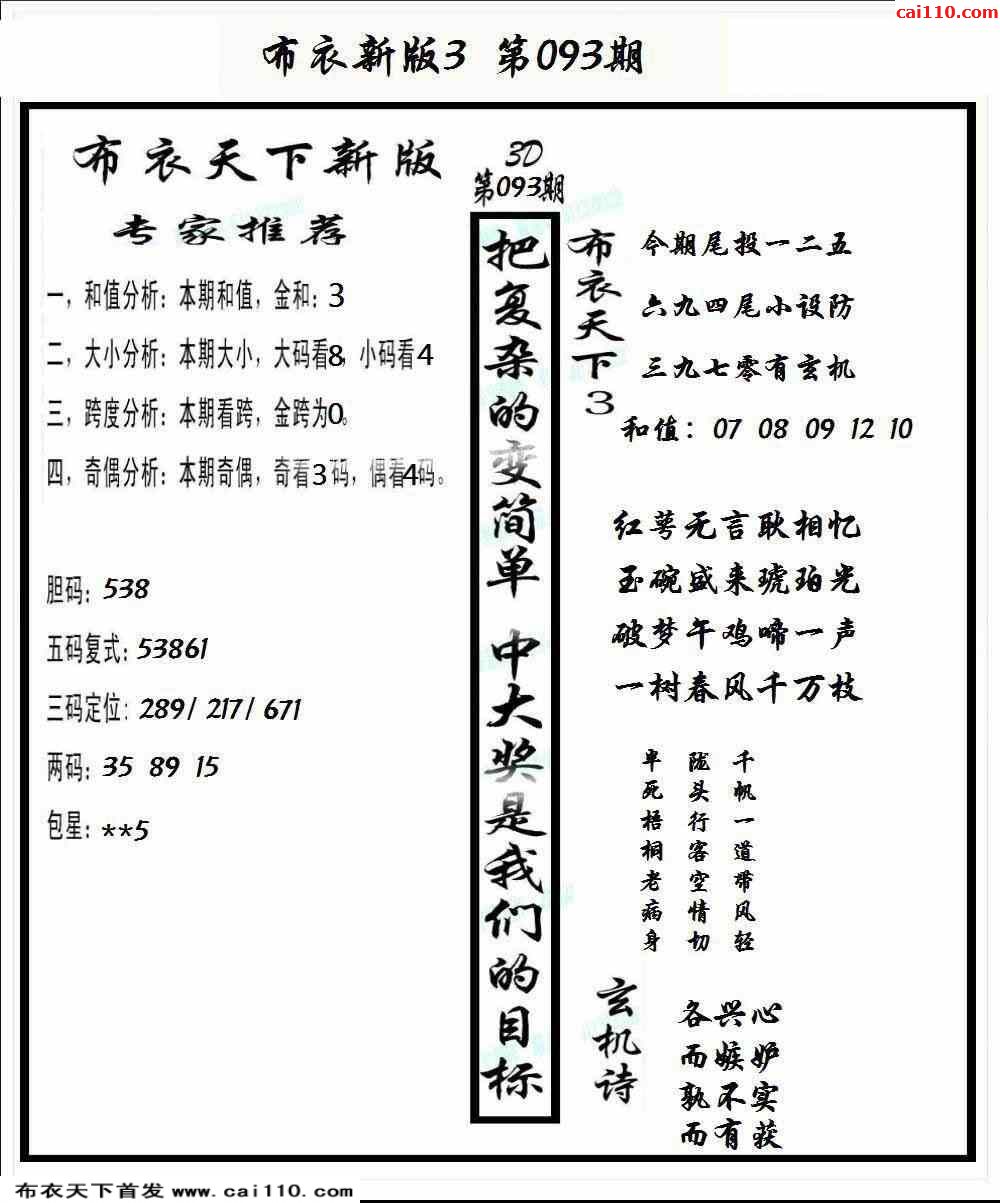 cai110.com
布衣新版3 第093期
布衣天下新版
专家推荐
一，和值分析：本期和值，金和：3
二，大小分析：本期大小，大码看8，小码看4
三，跨度分析：本期看跨，金跨为0。
四，奇偶分析：本期奇偶，奇看3码，偶看4码。
胆码：538
五码复式：53861
三码定位：289/ 217/ 671
两码：35 89 15
包星：**5
3D
第093期
把复杂的变简单 中大奖是我们的目标
布衣天下3
今期尾投一二五
六九四尾小设防
三九七零有玄机
和值： 07 08 09 12 10
红萼无言耿相忆
玉碗盛来琥珀光
破梦午鸡啼一声
一树春风千万枝
千帆一道带风轻
陇头行客空情切
半死梧桐老病身
玄机诗
各兴心
而嫉妒
孰不实
而有获
布衣天下首发 www.cai110.com